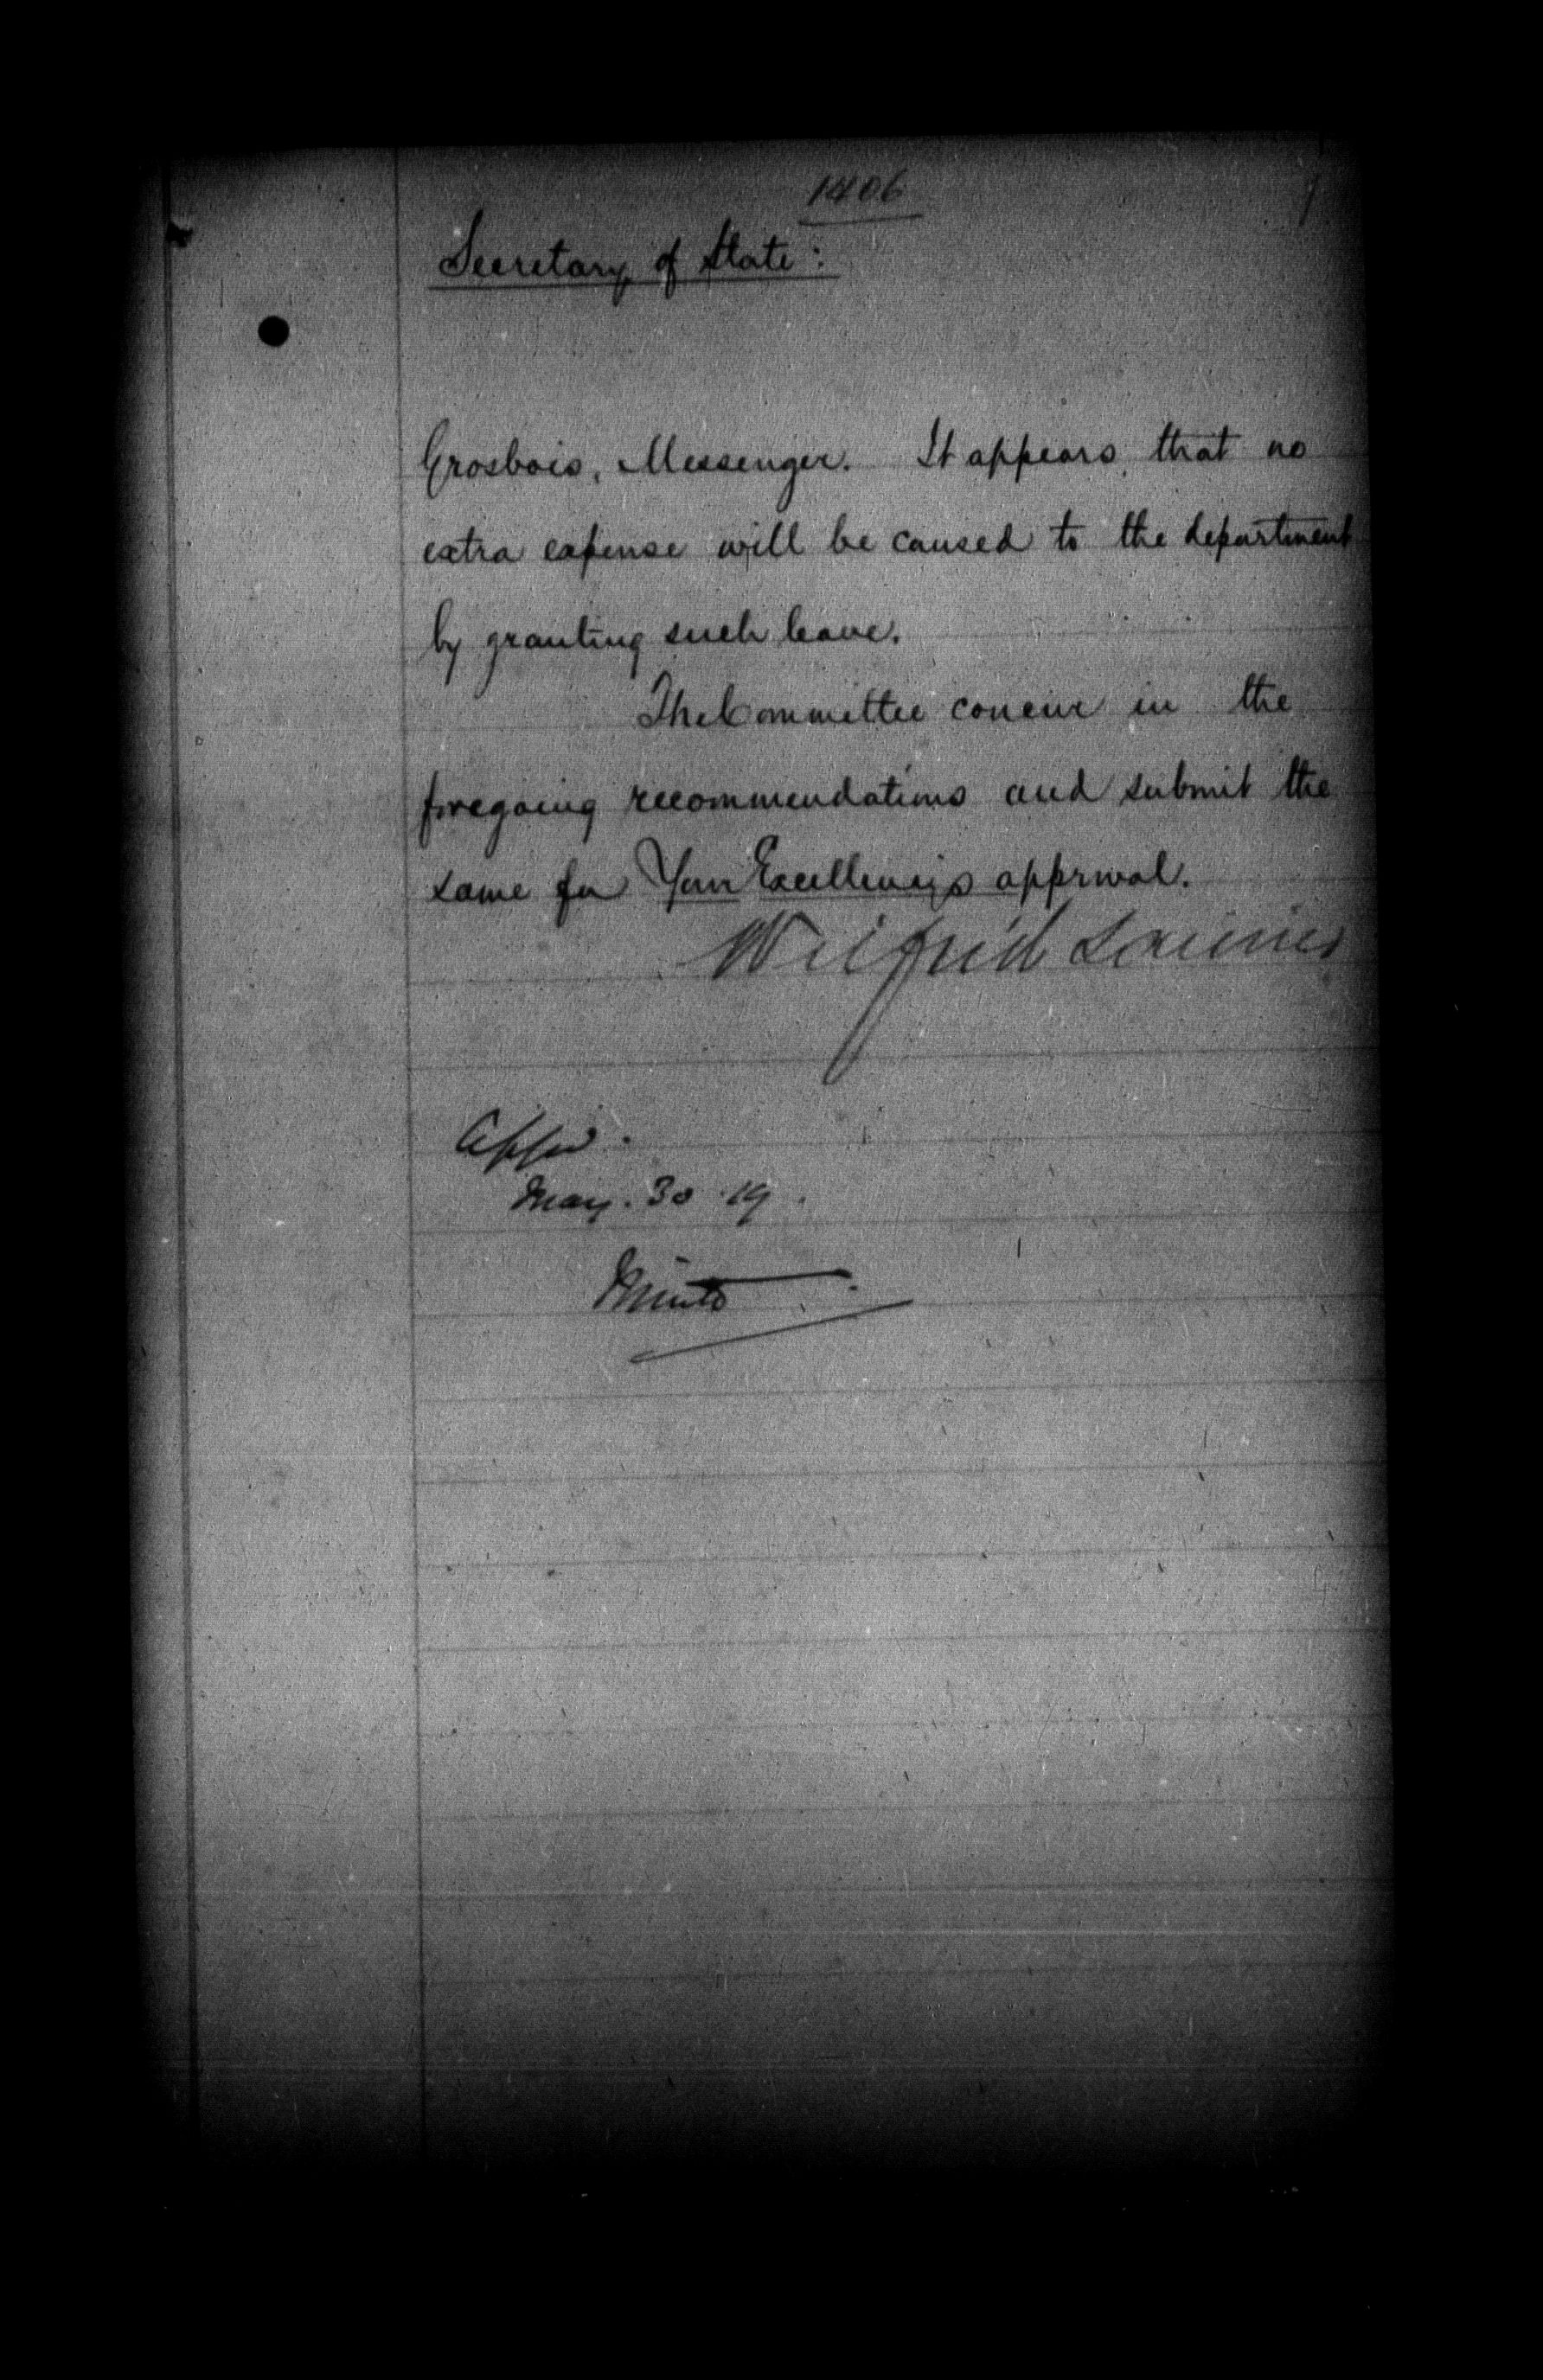 1406
Secretary of State:
Grosbois, Messenger. It appears that no
extra expense will be caused to the department
by granting such leave.
The Committee concur in the
foregoing recommendations and submit the
same for Your Excellency's approval.
Wilfrid Laurier
Appd.
May. 30 19.
Minto